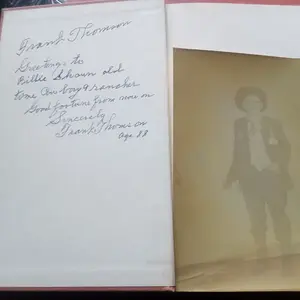 Frank Thomson
Greetings to
Billie Shaun old
time Cowboy & rancher
Good fortune from now on
Sincerely
Frank Thomson
Age 88